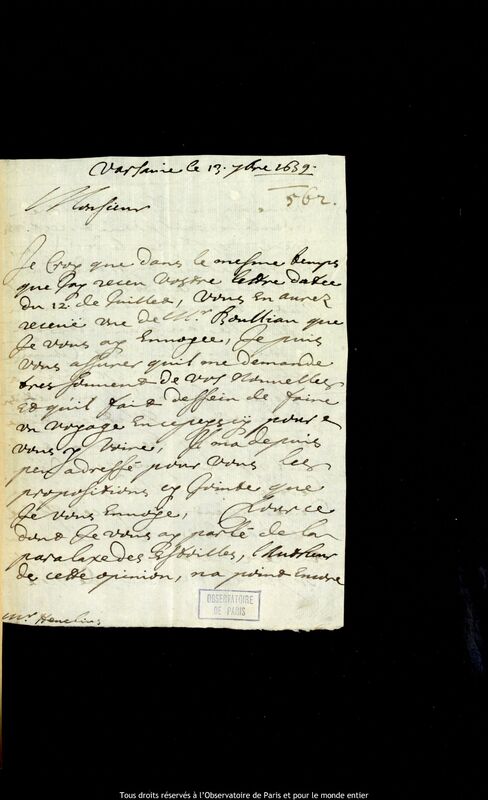 Varsavie le 13. 7bre 1659.
562.
Monsieur
Je Croy que dans le mesme temps
que Jay receu vostre lettre dattee
du 12. de Juillet, vous en aurez
receuë une de Mr. Boulliau que
Je vous ay Envoyee, Je puis
vous assurer quil me demande
tres souvent de vos Nouvelles
Et quil fait dessein de faire
un voyage En ce pays cy pour
vous y voire, Il ma depuis
peu adressé pour vous les
propositions cy Jointe que
Je vous Envoye, Pour ce
dont Je vous ay parlé de la
paralaxe des Estoilles, l'Autheur
de cette opinion, na point Encore
Mr. Hevelius
OBSERVATOIRE
DE PARIS
Tous droits réservés à l'Observatoire de Paris et pour le monde entier